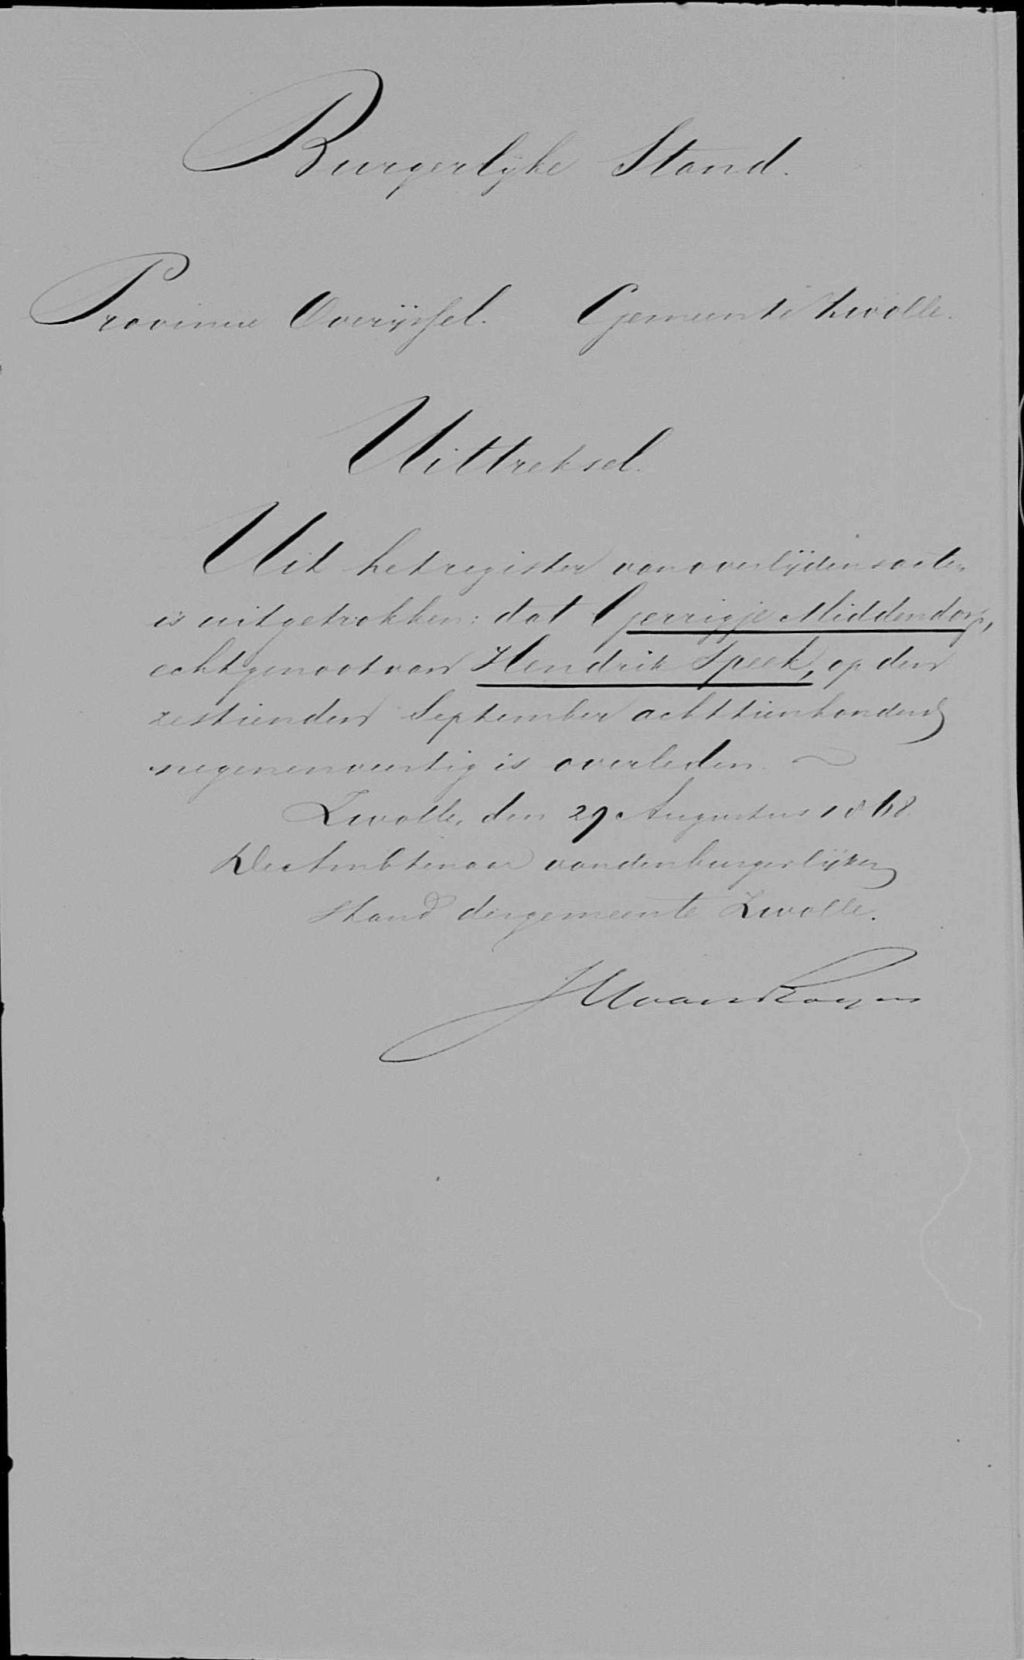 Burgerlyke Stand.
Provincie Overijssel. Gemeente Zwolle.
Uittreksel.
Uit het register van overlijdensacten
is uitgetrokken: dat Gerrigje Middendorp,
echtgenoot van Hendrik Speek, op den
zestienden September achttienhonderd
negenenveertig is overleden.
Zwolle, den 29 Augustus 1868.
De Ambtenaar van den burgerlijken
Stand der gemeente Zwolle.